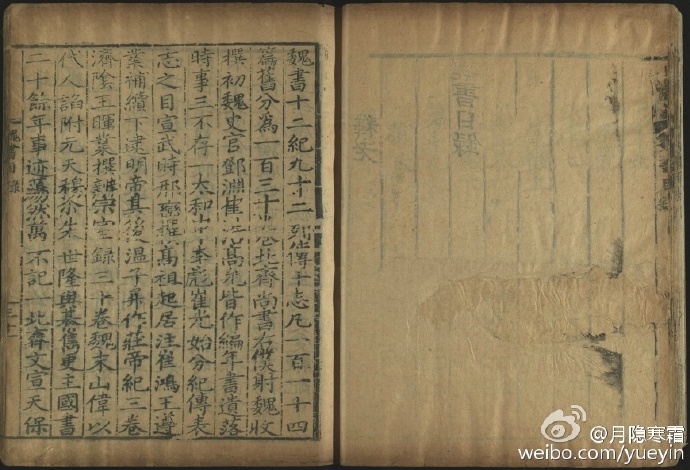 魏書十二紀九十二列傳十志凡一百一十四
篇舊分為一百三十卷北齊尚書右僕射魏收
撰初魏史官鄧淵崔浩高允皆作編年書遺落
時事三不存一太和中李彪崔光始分紀傳表
志之目宣武時邢巒撰高祖起居注崔鴻王遵
業補續下逮明帝其後溫子昇作莊帝紀三卷
濟陰王暉業撰辨宗室録三十卷魏末山偉以
代人諂附元天穆尒朱世隆與綦儁更主國書
二十餘年事迹蕩然萬不記一北齊文宣天保
魏書目録
三十
書目録
@月隐寒霜
weibo.com/yueyin